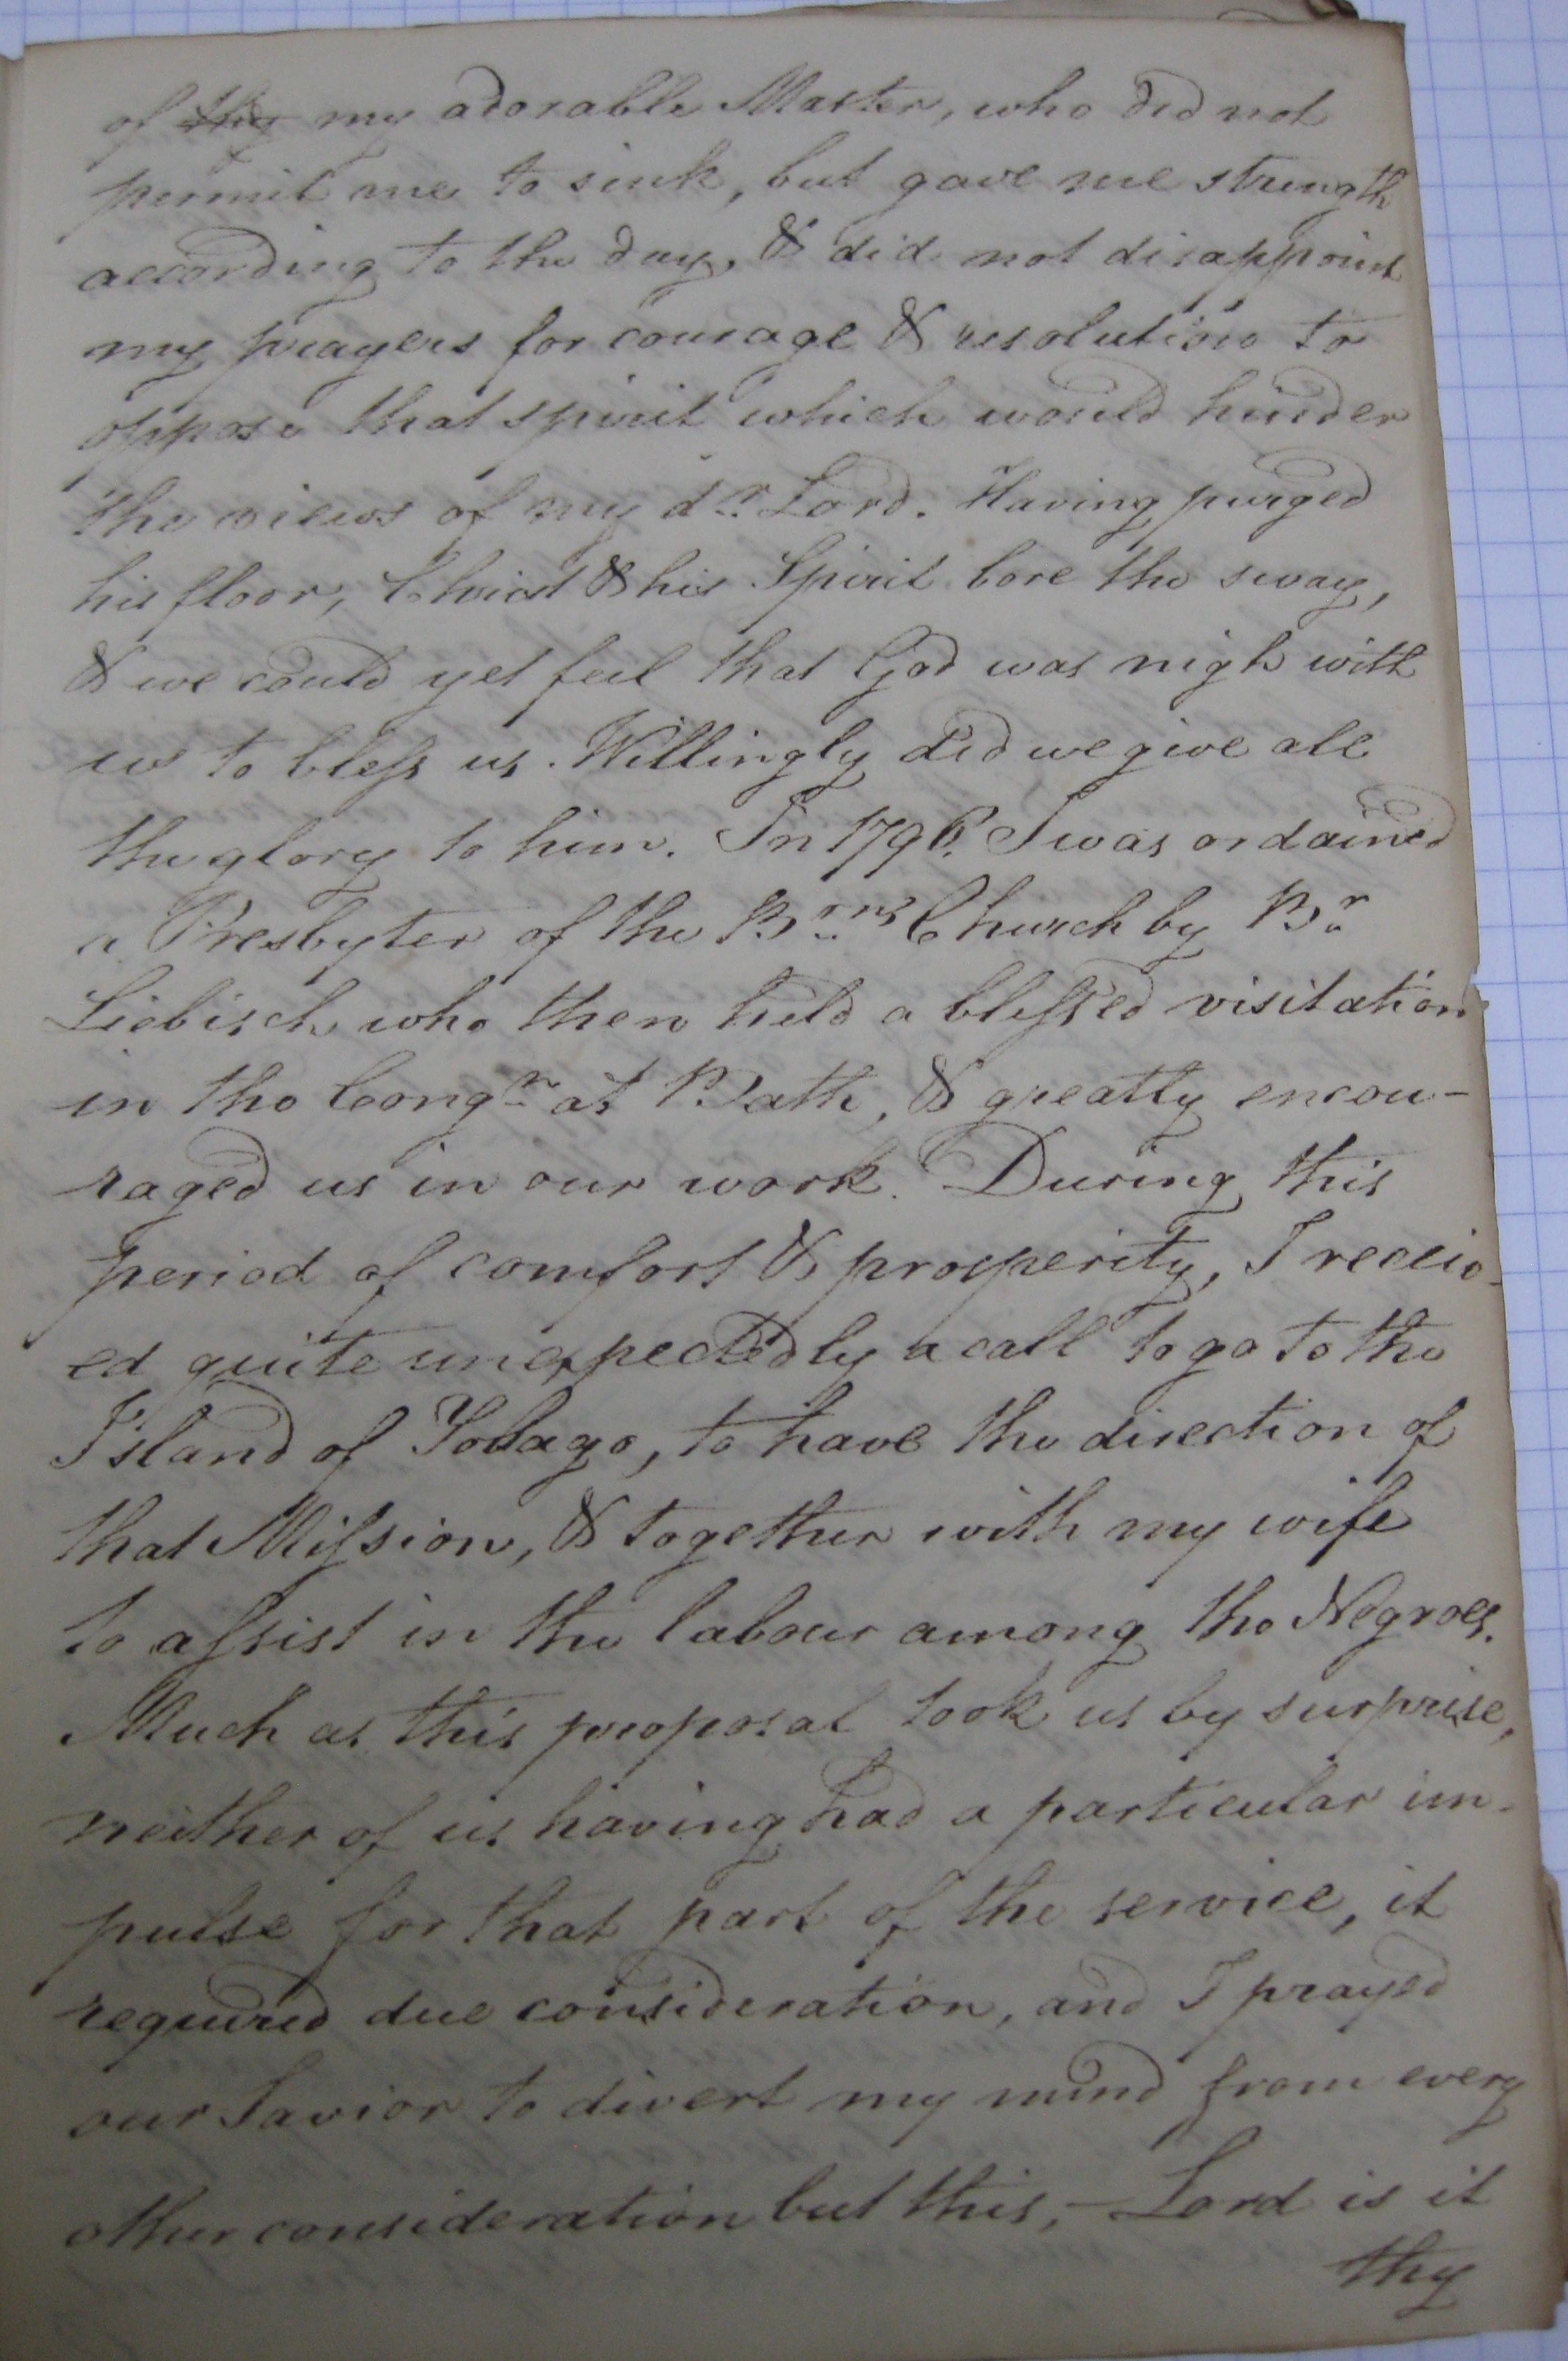 of thy my adorable Master, who did not
permit me to sink, but gave me strength
according to the day, & did not disappoint
my prayers for courage & resolution to
oppose that spirit which would hinder
the views of my dr. Lord. Having purged
his floor, Christ & his Spirit bore the sway,
& we could yet feel that God was nigh with
us to bless us. Willingly did we give all
the glory to him. In 1796. I was ordained
a Presbyter of the Brns Church by Br
Liebisch who then held a blessed visitation
in the Congn at Bath, & greatly encou-
raged us in our work. During this
period of comfort & prosperity, I receiv-
ed quite unexpectedly a call to go to the
Island of Tobago, to have the direction of
that Mission, & together with my wife
to assist in the labour among the Negroes.
Much as this proposal took us by surprise,
neither of us having had a particular im-
pulse for that part of the service, it
required due consideration, and I prayed
our Savior to divert my mind from every
other consideration but this,- Lord is it
thy